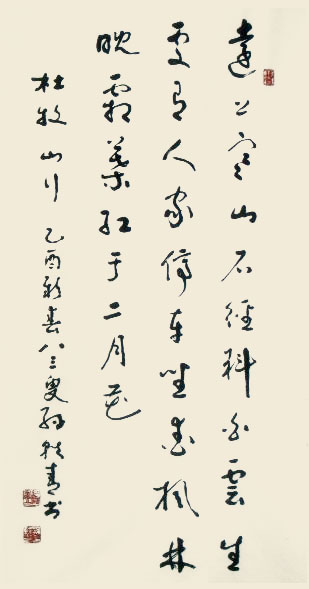 遠上寒山石徑斜白雲生
處有人家停車坐愛楓林
晚霜葉紅于二月花
杜牧山行 乙酉新春八三叟孫軼青书